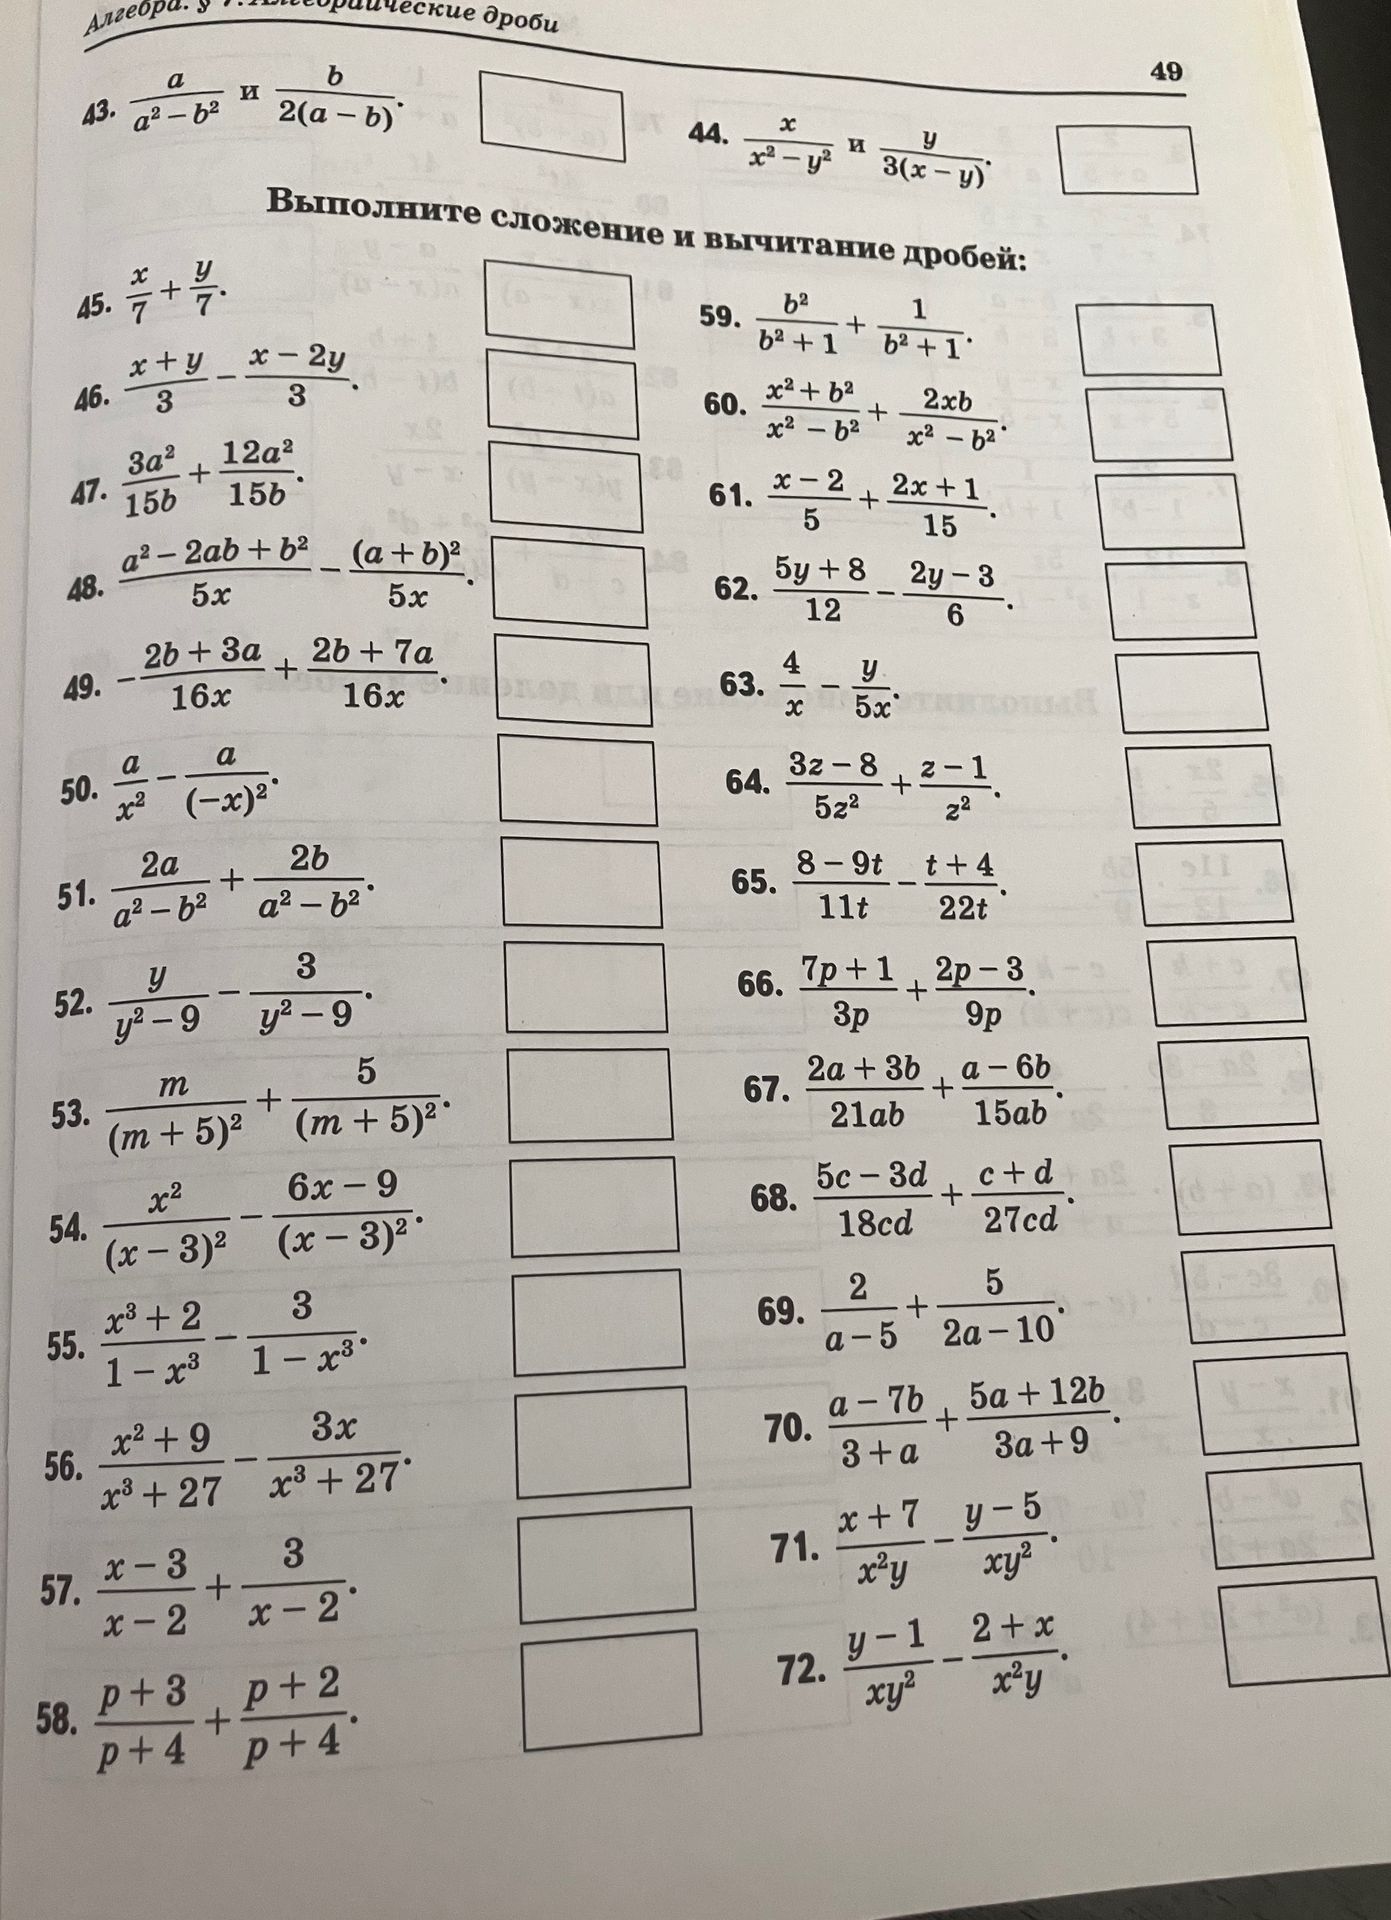 Алгебра. § 7. Алгебраические дроби
49
43. a/(a² − b²) и b/(2(a − b)).
44. x/(x² − y²) и y/(3(x − y)).
Выполните сложение и вычитание дробей:
45. x/7 + y/7.
46. (x + y)/3 − (x − 2y)/3.
47. 3a²/15b + 12a²/15b.
48. (a² − 2ab + b²)/5x − (a + b)²/5x.
49. −(2b + 3a)/16x + (2b + 7a)/16x.
50. a/x² − a/(−x)².
51. 2a/(a² − b²) + 2b/(a² − b²).
52. y/(y² − 9) − 3/(y² − 9).
53. m/(m + 5)² + 5/(m + 5)².
54. x²/(x − 3)² − (6x − 9)/(x − 3)².
55. (x³ + 2)/(1 − x³) − 3/(1 − x³).
56. (x² + 9)/(x³ + 27) − 3x/(x³ + 27).
57. (x − 3)/(x − 2) + 3/(x − 2).
58. (p + 3)/(p + 4) + (p + 2)/(p + 4).
59. b²/(b² + 1) + 1/(b² + 1).
60. (x² + b²)/(x² − b²) + 2xb/(x² − b²).
61. (x − 2)/5 + (2x + 1)/15.
62. (5y + 8)/12 − (2y − 3)/6.
63. 4/x − y/5x.
64. (3z − 8)/5z² + (z − 1)/z².
65. (8 − 9t)/11t − (t + 4)/22t.
66. (7p + 1)/3p + (2p − 3)/9p.
67. (2a + 3b)/21ab + (a − 6b)/15ab.
68. (5c − 3d)/18cd + (c + d)/27cd.
69. 2/(a − 5) + 5/(2a − 10).
70. (a − 7b)/(3 + a) + (5a + 12b)/(3a + 9).
71. (x + 7)/x²y − (y − 5)/xy².
72. (y − 1)/xy² − (2 + x)/x²y.